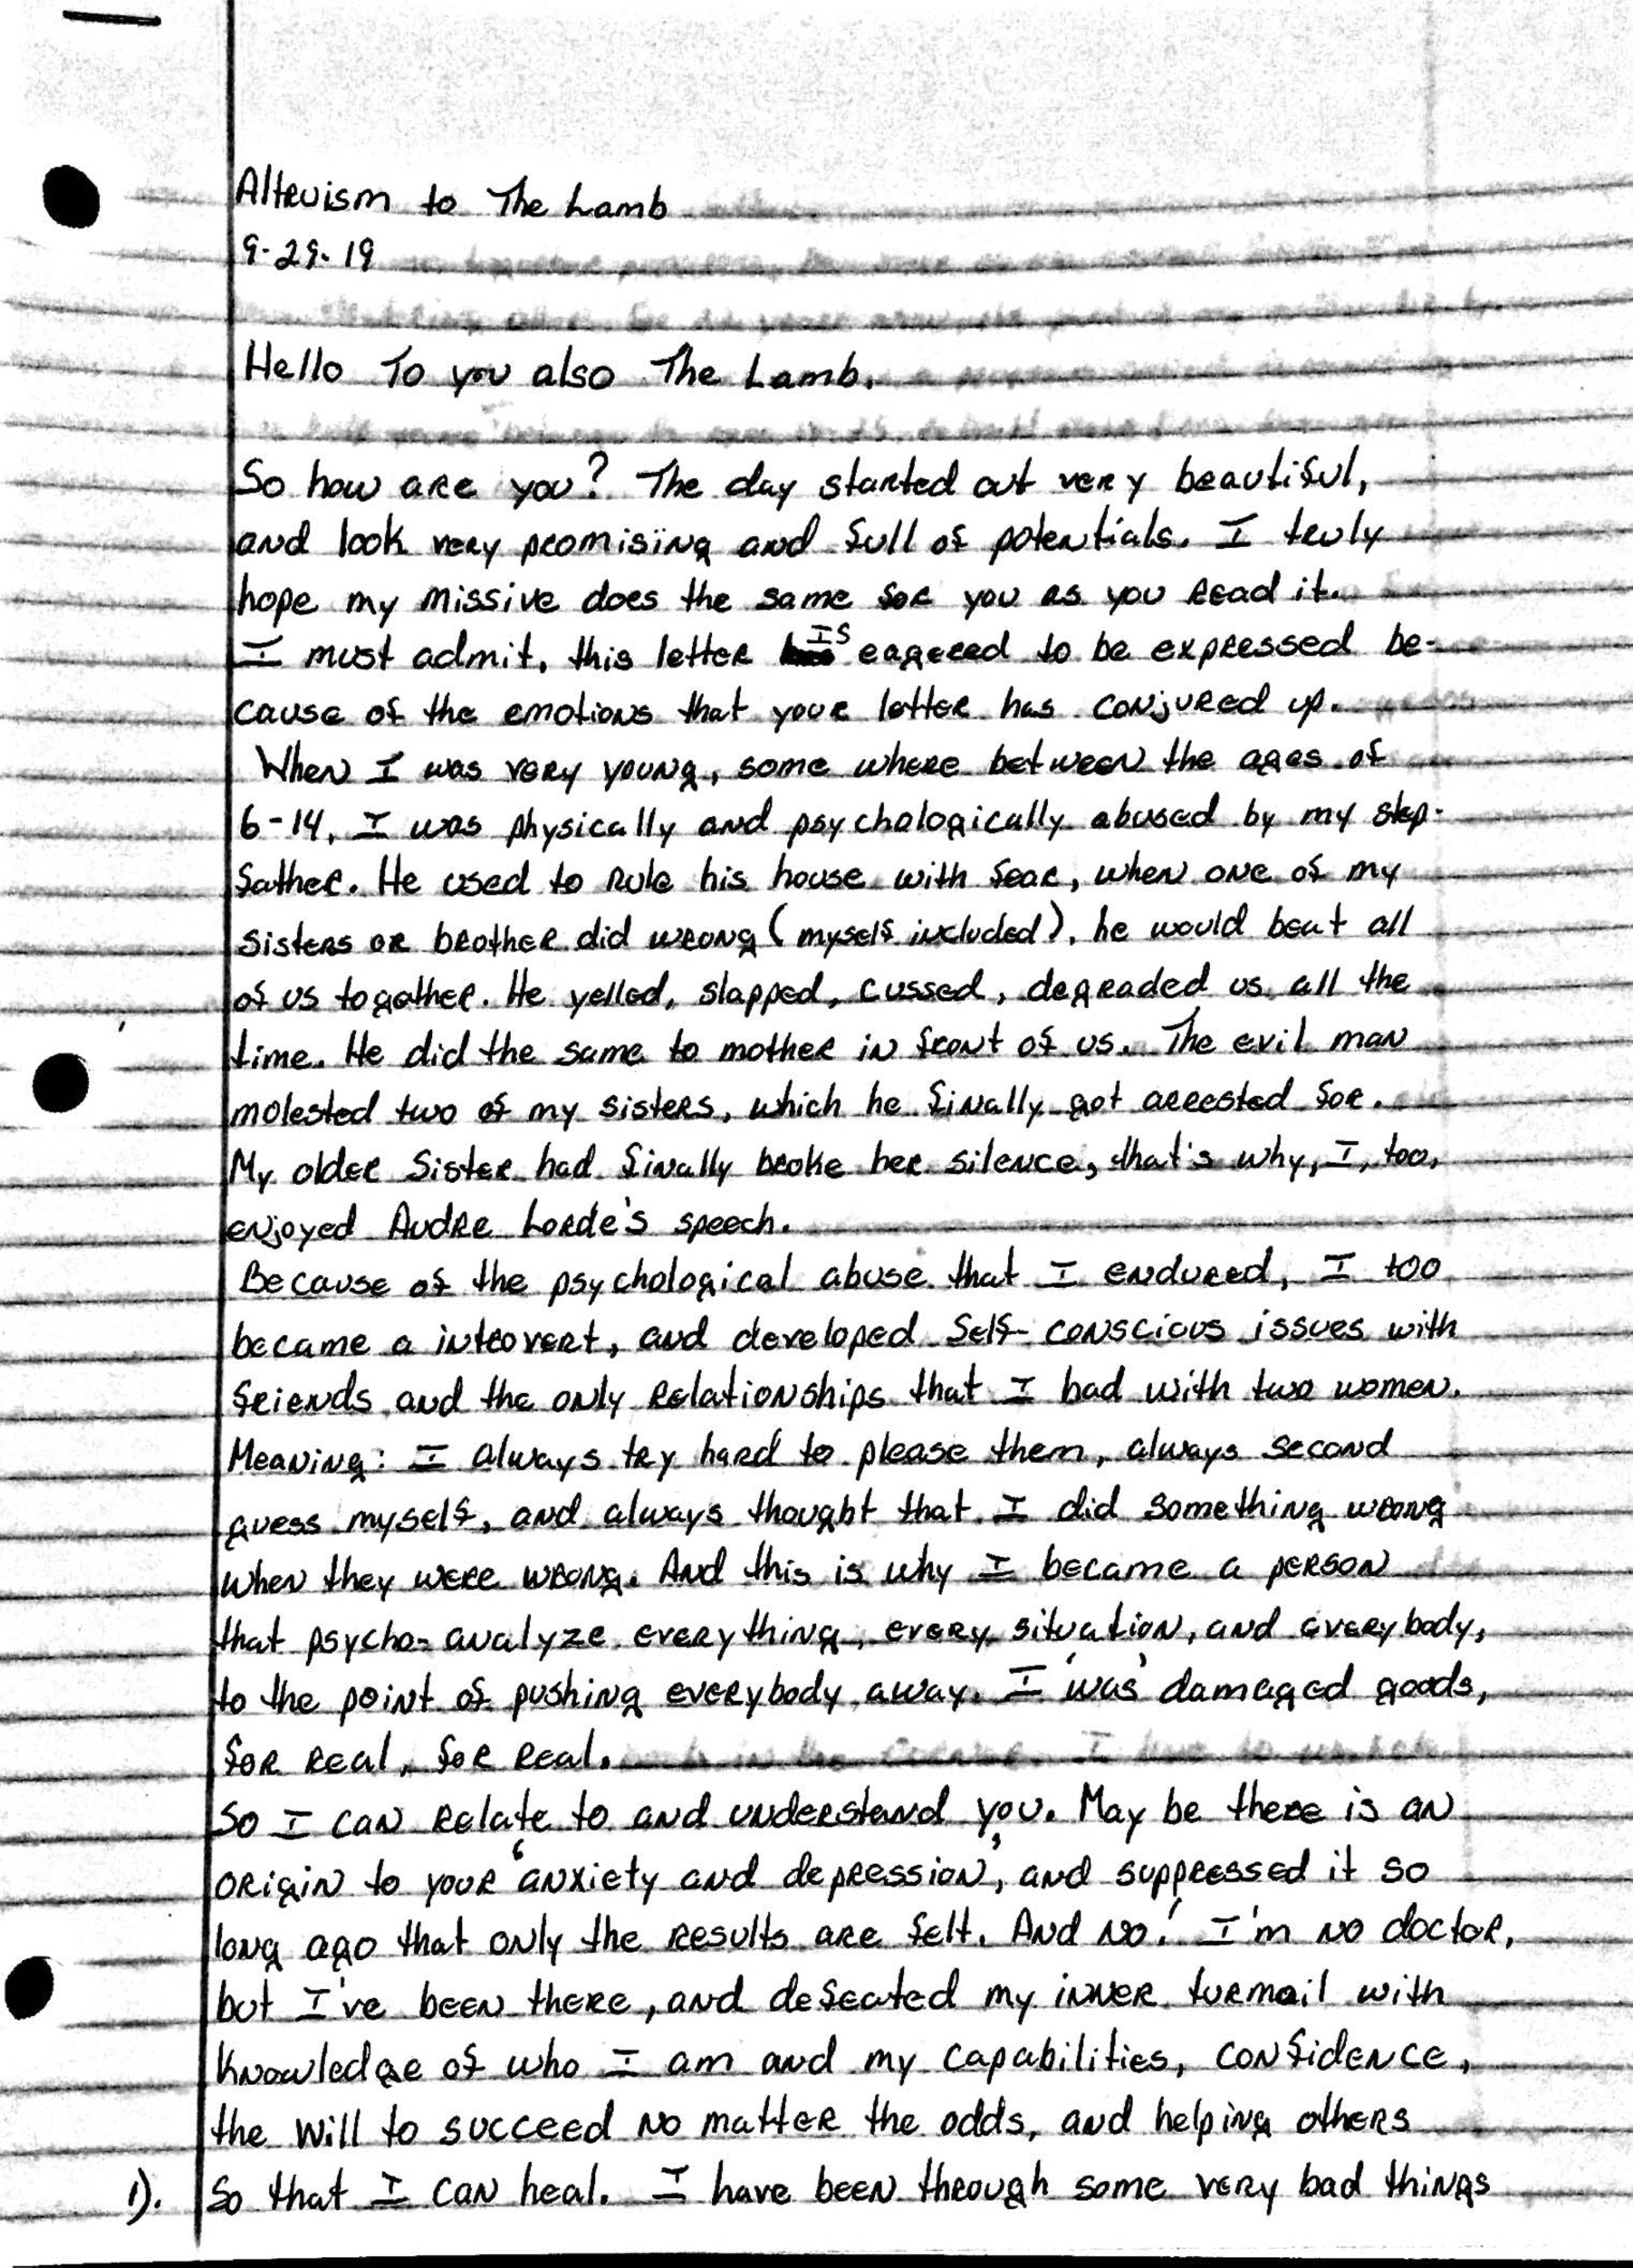 Altruism to The Lamb
9-29-19
Hello To you also The Lamb.
So how are you? The day started out very beautiful,
and look very promising and full of potentials. I truly
hope my missive does the same for you as you read it.
I must admit, this letter IS eagered to be expressed be-
cause of the emotions that your letter has conjured up.
When I was very young, some where between the ages of
6-14, I was physically and psychologically abused by my step-
father. He used to rule his house with fear, when one of my
sisters or brother did wrong (myself included), he would beat all
of us together. He yelled, slapped, cussed, degraded us all the
time. He did the same to mother in front of us. The evil man
molested two of my sisters, which he finally got arrested for.
My older Sister had finally broke her silence, that's why, I, too,
enjoyed Audre Lorde's speech.
Because of the psychological abuse that I endured, I too
became a introvert, and developed self-conscious issues with
friends and the only relationships that I had with two women.
Meaning: I always try hard to please them, always second
guess myself, and always thought that I did something wrong
when they were wrong. And this is why I became a person
that psycho-analyze everything, every situation, and everybody,
to the point of pushing everybody away. I 'was' damaged goods,
for real, for real.
So I can relate to and understand you. May be there is an
origin to your 'anxiety and depression', and suppressed it so
long ago that only the results are felt. And no! I'm no doctor,
but I've been there, and defeated my inner turmoil with
knowledge of who I am and my capabilities, confidence,
the will to succeed no matter the odds, and helping others
1). So that I can heal. I have been through some very bad things